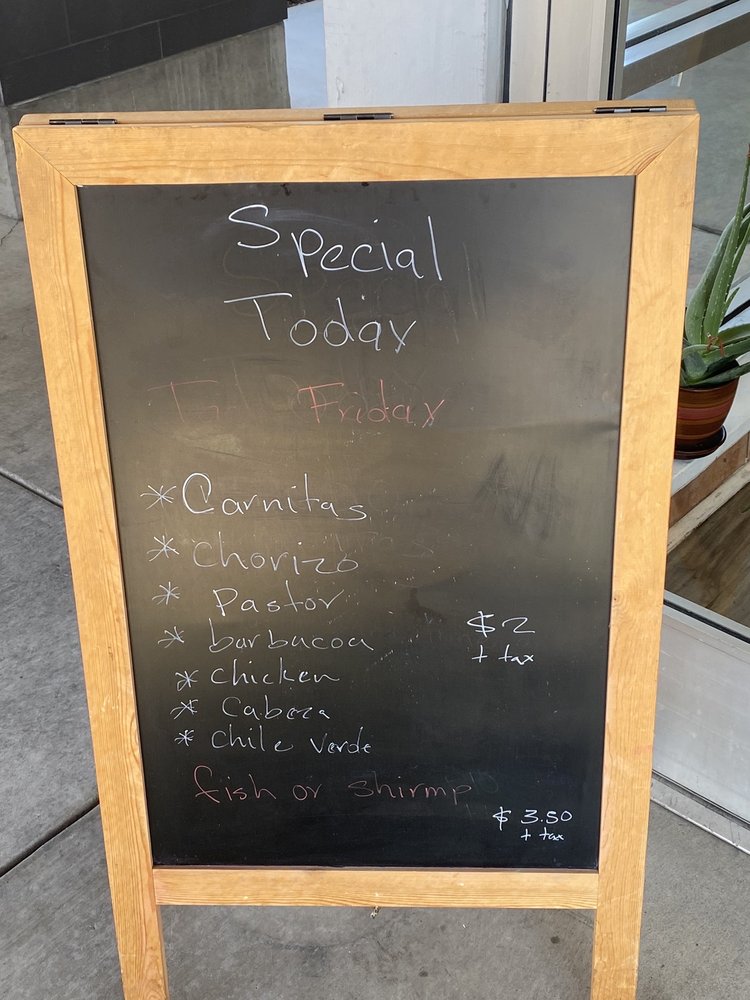 Special
Today
Friday
* Carnitas
* Chorizo
* Pastor
* barbacoa
$2
+ tax
* Chicken
* Cabeza
* Chile Verde
fish or shirmp
$3.50
+ tax